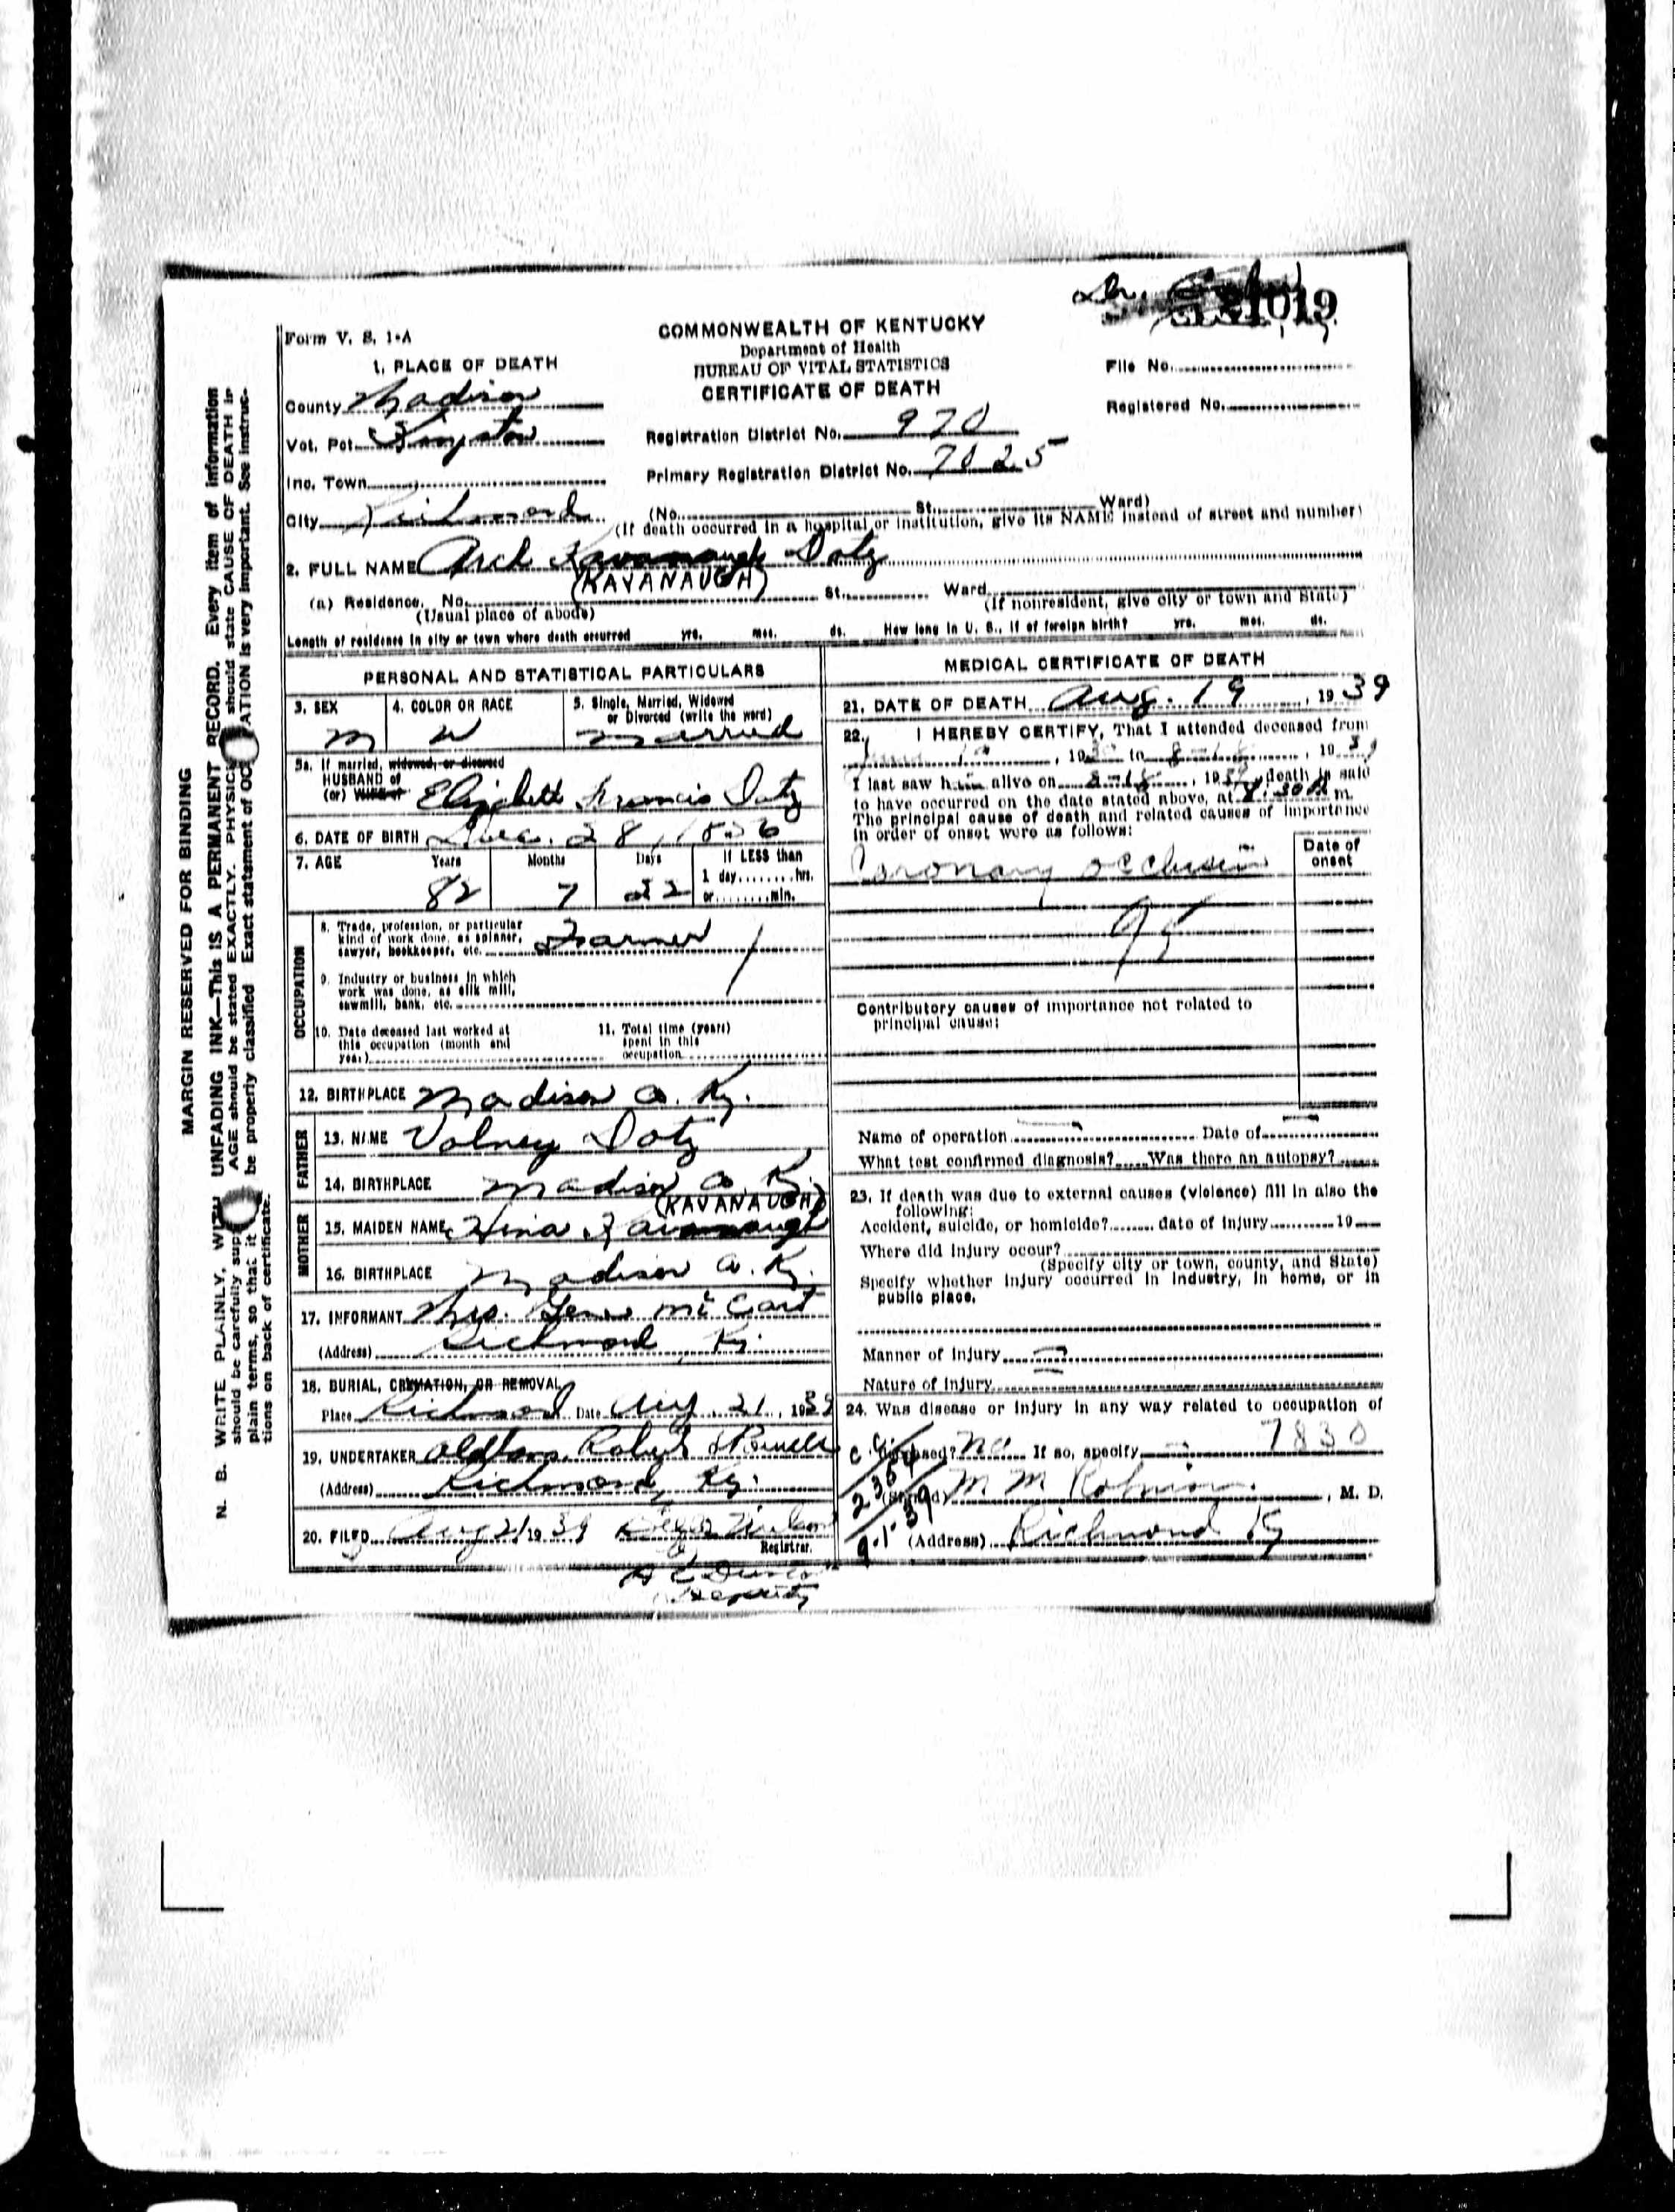 Dr.
21019
Form V. S. 1-A
COMMONWEALTH OF KENTUCKY
Department of Health
BUREAU OF VITAL STATISTICS
CERTIFICATE OF DEATH
File No.
Registered No.
1. PLACE OF DEATH
County Madison
Vot. Pct. Kingston
Inc. Town
City Richmond
Registration District No. 970
Primary Registration District No. 7025
(No. St. Ward)
(If death occurred in a hospital or institution, give its NAME instead of street and number)
2. FULL NAME Arch Kavanaugh Doty
(KAVANAUGH)
(a) Residence. No. St. Ward
(Usual place of abode) (If nonresident, give city or town and State)
Length of residence in city or town where death occurred yrs. mos. ds. How long in U. S., if of foreign birth? yrs. mos. ds.
PERSONAL AND STATISTICAL PARTICULARS
3. SEX
M
4. COLOR OR RACE
W
5. Single, Married, Widowed
or Divorced (write the word)
Married
5a. If married, widowed, or divorced
HUSBAND of
(or) WIFE of Elizabeth Francis Doty
6. DATE OF BIRTH Dec. 28, 1856
7. AGE Years Months Days If LESS than
1 day hrs.
or min.
82 7 22
OCCUPATION
8. Trade, profession, or particular
kind of work done, as spinner,
sawyer, bookkeeper, etc. Farmer
9. Industry or business in which
work was done, as silk mill,
sawmill, bank, etc.
10. Date deceased last worked at
this occupation (month and
year)
11. Total time (years)
spent in this
occupation
12. BIRTHPLACE Madison Co. Ky.
FATHER
13. NAME Volney Doty
14. BIRTHPLACE Madison Co. Ky.
(KAVANAUGH)
MOTHER
15. MAIDEN NAME Kavanaugh
16. BIRTHPLACE Madison Co. Ky.
17. INFORMANT Mrs. Gene McCart
(Address) Richmond, Ky.
18. BURIAL, CREMATION, OR REMOVAL
Place Richmond Date Aug. 21, 1939
19. UNDERTAKER Oldham, Roberts & Powell
(Address) Richmond, Ky.
20. FILED Aug 21 1939
Registrar.
Deputy
MEDICAL CERTIFICATE OF DEATH
21. DATE OF DEATH Aug. 19, 1939
22. I HEREBY CERTIFY, That I attended deceased from
, 19 to 8-18, 1939
I last saw him alive on 8-18, 1939, death is said
to have occurred on the date stated above, at m.
The principal cause of death and related causes of importance
in order of onset were as follows:
Date of
onset
Coronary occlusion
Contributory causes of importance not related to
principal cause:
Name of operation Date of
What test confirmed diagnosis? Was there an autopsy?
23. If death was due to external causes (violence) fill in also the
following:
Accident, suicide, or homicide? date of injury 19
Where did injury occur?
(Specify city or town, county, and State)
Specify whether injury occurred in industry, in home, or in
public place.
Manner of injury
Nature of injury
24. Was disease or injury in any way related to occupation of
deceased? No If so, specify 7830
(Signed) M M Robinson, M. D.
(Address) Richmond Ky
MARGIN RESERVED FOR BINDING
N. B. WRITE PLAINLY, WITH UNFADING INK—This IS A PERMANENT RECORD. Every item of information
should be carefully supp AGE should be stated EXACTLY. PHYSICI should state CAUSE OF DEATH in
plain terms, so that it be properly classified Exact statement of OCC ATION is very important. See instruc-
tions on back of certificate.